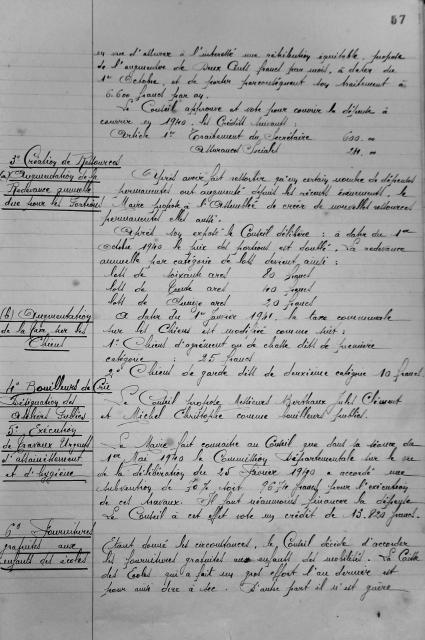 67
en vue d'assurer à l'intéressé une rétribution équitable, propose
de l'augmenter de Deux Cents francs par mois, à dater du
1er Octobre, et de porter par conséquent son traitement à
6.600 francs par an.
Le Conseil approuve et vote pour couvrir la dépense à
courir en 1940, les Crédits suivants :
Article 1er Traitement du Secrétaire 600.00
Assurances Sociales
3° Création de Ressources
a) Augmentation de la
Redevance annuelle
due pour les Portions
Après avoir fait ressortir qu'un certain nombre de dépenses
permanentes ont augmenté depuis les récents événements, le
Maire propose à l'Assemblée de créer de nouvelles ressources
permanentes elles aussi.
Après son exposé le Conseil délibère : à dater du 1er
Octobre 1940 le prix des portions est doublé. La redevance
annuelle par catégorie de lots devient ainsi :
lots de soixante ares 80 francs
lots de trente ares 40 francs
lots de quinze ares 20 francs
(b) Augmentation
de la taxe sur les
Chiens
A dater du 1er Janvier 1941, la taxe communale
sur les Chiens est modifiée comme suit :
1° Chiens d'agrément ou de chasse dits de première
catégorie : 25 francs
2° Chiens de garde dits de deuxième catégorie 10 francs
4° Bouilleurs de Cru
Désignation des
Ateliers Publics
Le Conseil propose Messieurs Jules Clément
et Michel Christophe comme bouilleurs publics.
5° Exécution
de Travaux Urgents
d'assainissement
et d'hygiène
Le Maire fait connaître au Conseil que dans sa séance du
1er Mai 1940 la Commission Départementale sur le vu
de la délibération du 25 Janvier 1940 a accordé une
subvention de pour l'exécution
de ces travaux. Il faut néanmoins financer la dépense
Le Conseil à cet effet vote un crédit de 13.820 francs.
6° Fournitures
gratuites aux
enfants des écoles
Etant donné les circonstances, le Conseil décide d'accorder
les fournitures gratuites aux enfants des mobilisés. La Caisse
des Ecoles qui a fait un gros effort l'an dernier est
pour ainsi dire à sec. D'autre part il n'est guère